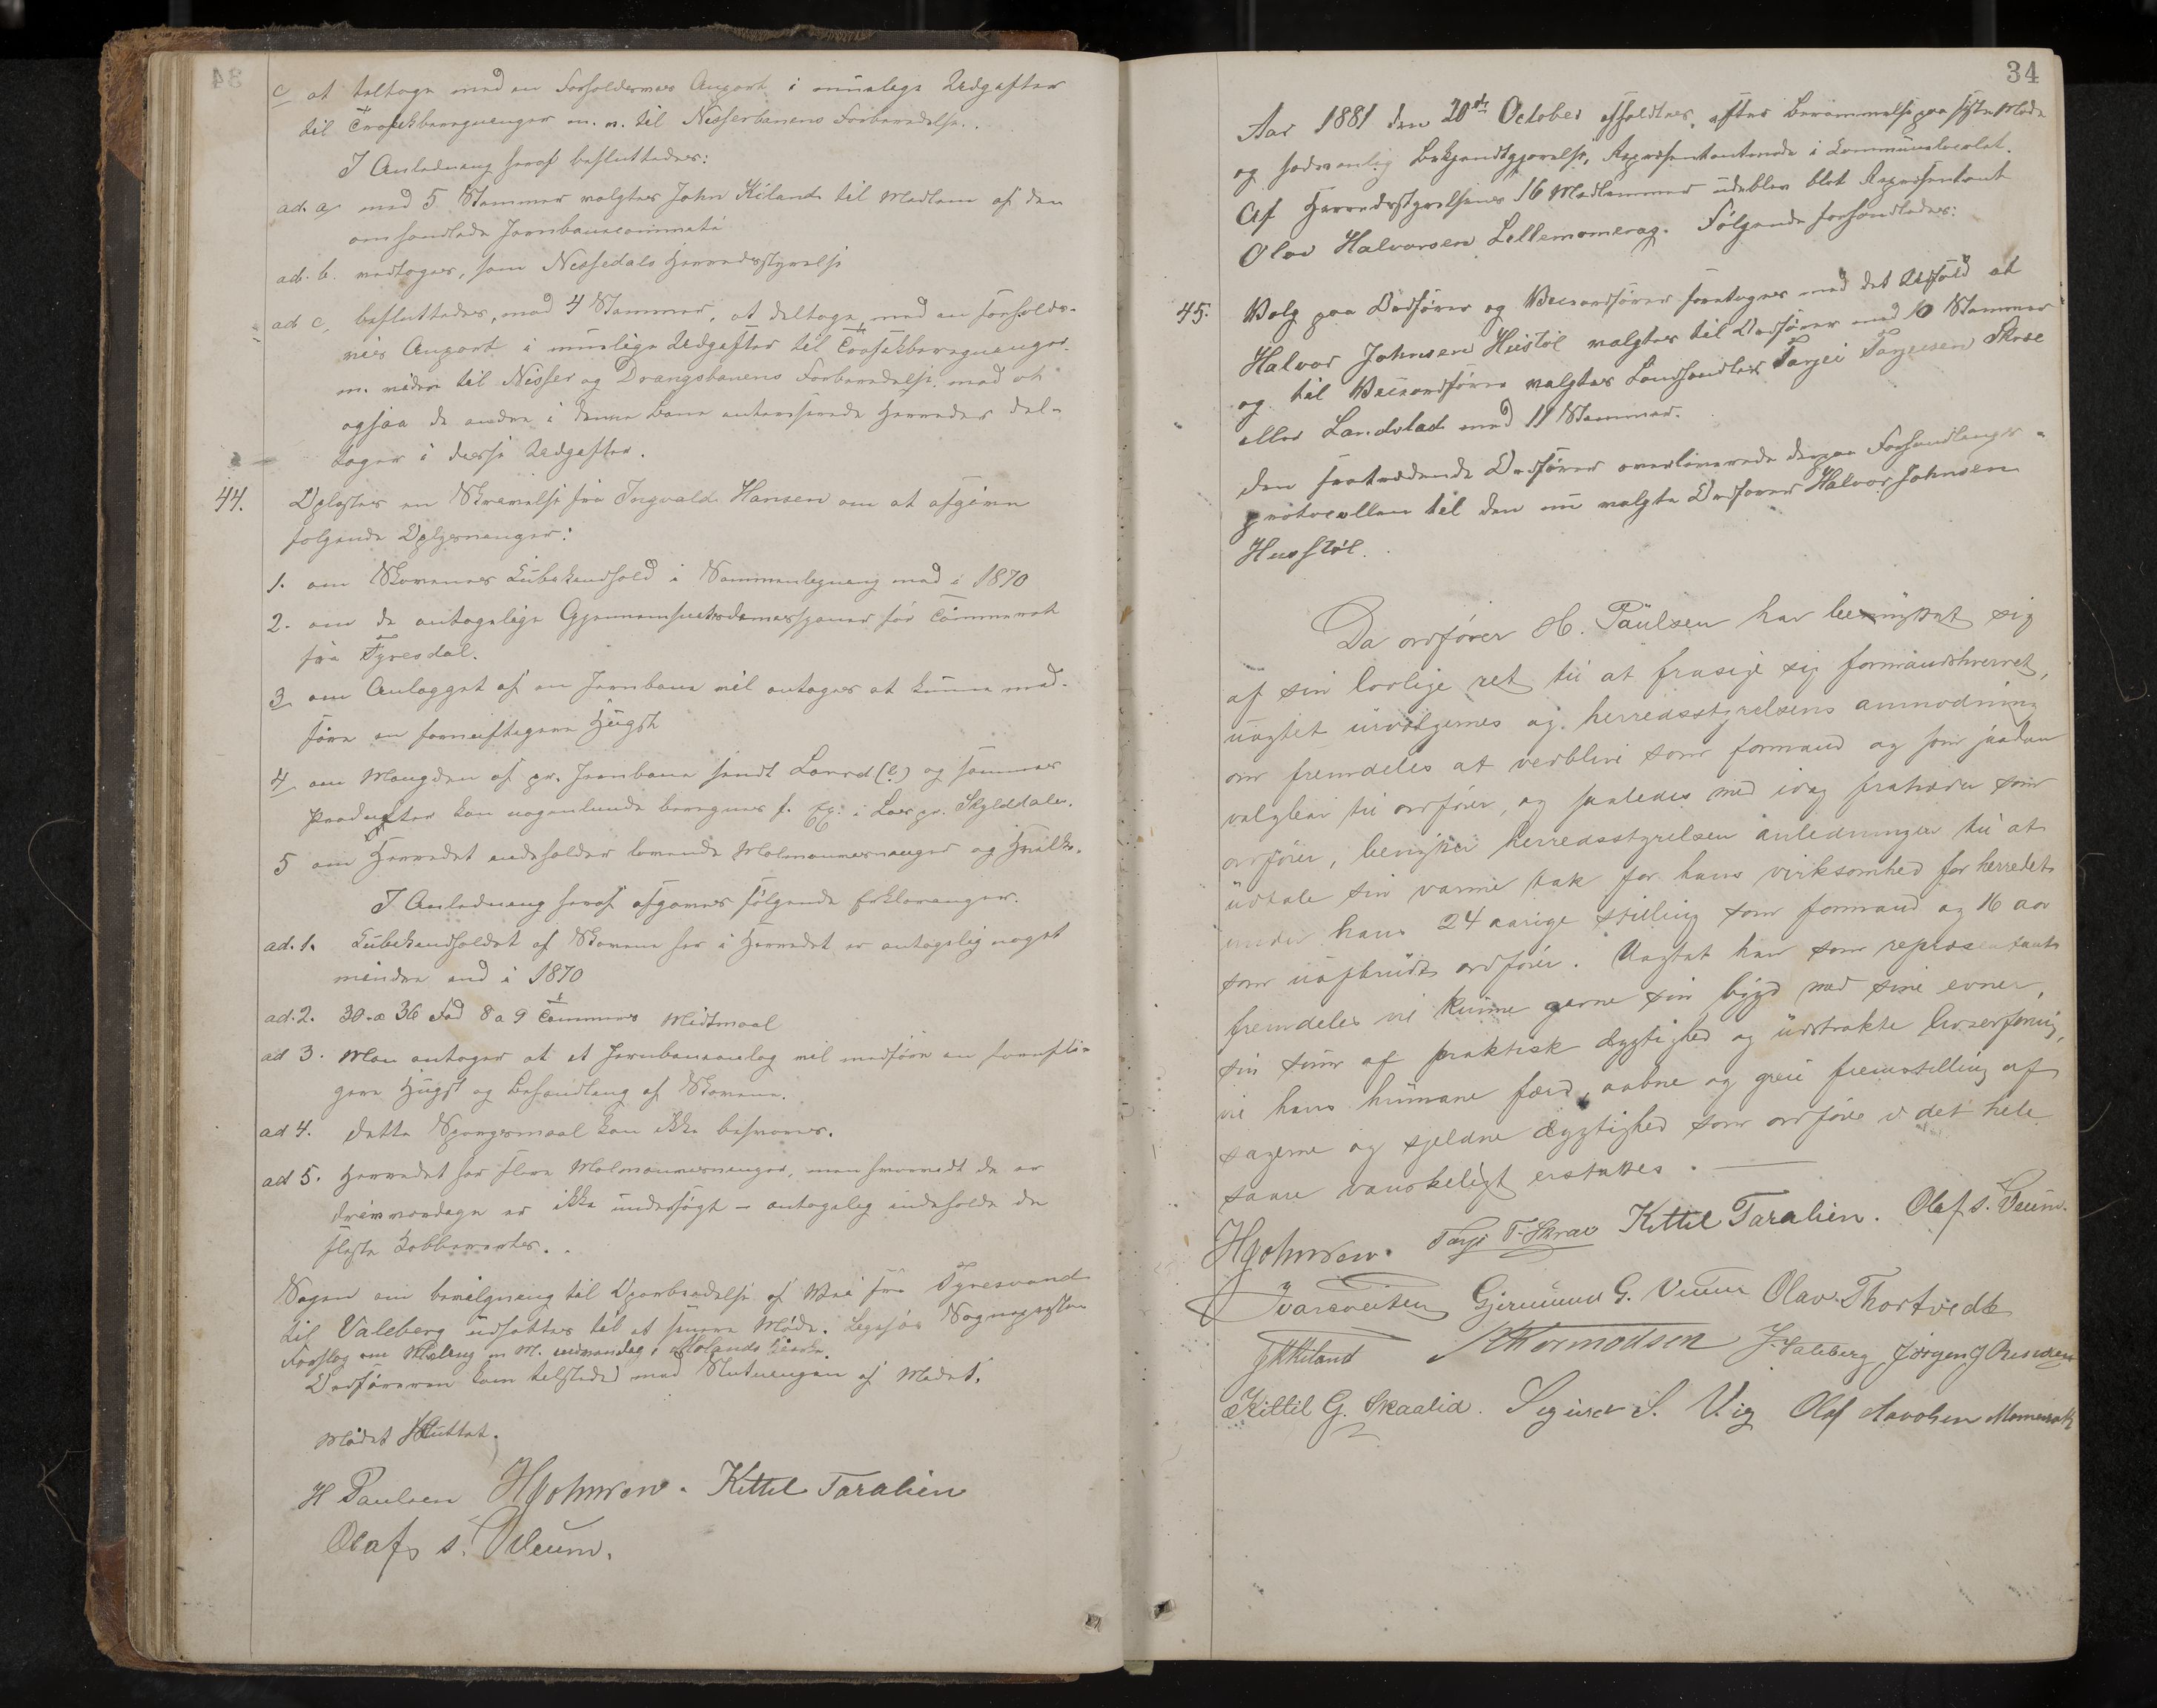 c at deltage med en forholdsmæs Anpart i mulige Udgifter
til Trafikberegninger m. m. til Nisserbanens Forberedelse.
I Anledning heraf besluttedes:
ad. a med 5 Stemmer valgtes John Kiland til Medlem af den
omhandlede Jernbanecommité
ad. b. vedtoges, som Nissedals Herredsstyrelse
ad c, besluttedes, med 4 Stemmer, at deltage med en forholds-
mæs Anpart i mulige Udgifter til Trafikberegninger
m. videre til Nisser og Drangsbanens Forberedelse, med at
ogsaa de andre i denne Bane interesserede Herreder del-
tager i disse Udgifter.
44. Oplæstes en Skrivelse fra Ingvald Hansen om at afgive
følgende Oplysninger:
1. om Skovenes Kubikindhold i Sammenligning med i 1870
2. om de antagelige Gjennemsnitsdimensjoner for Tømmeret
fra Tyresdal.
3 om Anlægget af en Jernbane vil antages at kunne med-
føre en fornuftigere Hugst
4 om Mængden af pr. Jernbane sendt Lavred (?) og sammes
Producter kan nogenlunde beregnes f. Ex: i Læs pr. Skylddaler.
5 om Herredet indeholder lovende Malmanvisninger og Hvilke.
I Anledning heraf afgaves følgende Erklæringer.
ad. 1. Kubikindholdet af Skovene her i Herredet er antagelig noget
mindre end i 1870
ad. 2. 30 a 36 Fod 8 a 9 Tommers Midtmaal
ad 3. Man antager at et Jernbaneanlæg vil medføre en fornufti-
gere Hugst og Behandling af Skovene.
ad 4. Dette Spørgsmaal kan ikke besvares.
ad 5. Herredet har flere Malmanvisninger, men hvorvidt de er
drivværdige er ikke undersøgt – antagelig indeholde de
fleste Kobbererts.
Sagen om bevilgning til Oparbeidelse af Vei fra Tyresvand
til Valeberg udsattes til et senere Møde. Ligesaa Sognepræsten
Forslag om Maling m M. indvendig i Molands Kirke.
Ordføreren kom tilstede med Slutningen af Mødet.
Mødet sluttet.
H Paulsen HJohnsen. Kittil Taralien
Olaf s. Veum.
34
Aar 1881 den 20de October afholdtes, efter Berammelse paa siste Møde
og sedvanlig Bekjendtgjørelse, Repræsentantmøde i Kommunelocalet.
Af Herredsstyrelsens 16 Medlemmer udeblev blot Repræsentant
Olav Halvorsen Lillemomerag. Følgende forhandledes:
45. Valg paa Ordfører og Viceordfører foretoges med det Udfald at
Halvor Johnsen Hustøl valgtes til Ordfører med 10 Stemmer
og til Viceordfører valgtes Landhandler Tarjei Tarjeisen Skrae
eller Landstad med 11 Stemmer.
Den fratrædende Ordfører overleverede derpaa Forhandlings-
protocollen til den nu valgte Ordfører Halvor Johnsen
Husstøl.
Da ordfører H. Paulsen har benyttet sig
af sin lovlige ret til at frasige sig formandshvervet,
uagtet urvælgernes og herredsstyrelsens anmodning
om fremdeles at vedblive som formand og som saadan
valgbar til ordfører, og saaledes med idag fratræder som
ordfører, benytter herredsstyrelsen anledningen til at
udtale sin varme tak for hans virksomhed for herredet
under hans 24 aarige stilling som formand og 16 aar
som uafbrudt ordfører. Uagtet han som repræsentant
fremdeles vil kunne gavne sin bygd med sine evner,
sin sum af praktisk dygtighed og udstrakte livserfaring,
vil hans humane færd, aabne og greie fremstilling af
sagerne og sjeldne dygtighed som ordfører i det hele
saare vanskeligt erstattes. —
HJohnsen. Tarje T. Skrae Kittil Taralien. Olaf s. Veum.
Gjermund G. Veum Olav Thortvedt
JKKiland KThormodsen J. Valeberg Jørgen J
Kittil G. Skaalid. Sigurd S. Vig Olaf Aavolsen Momerak